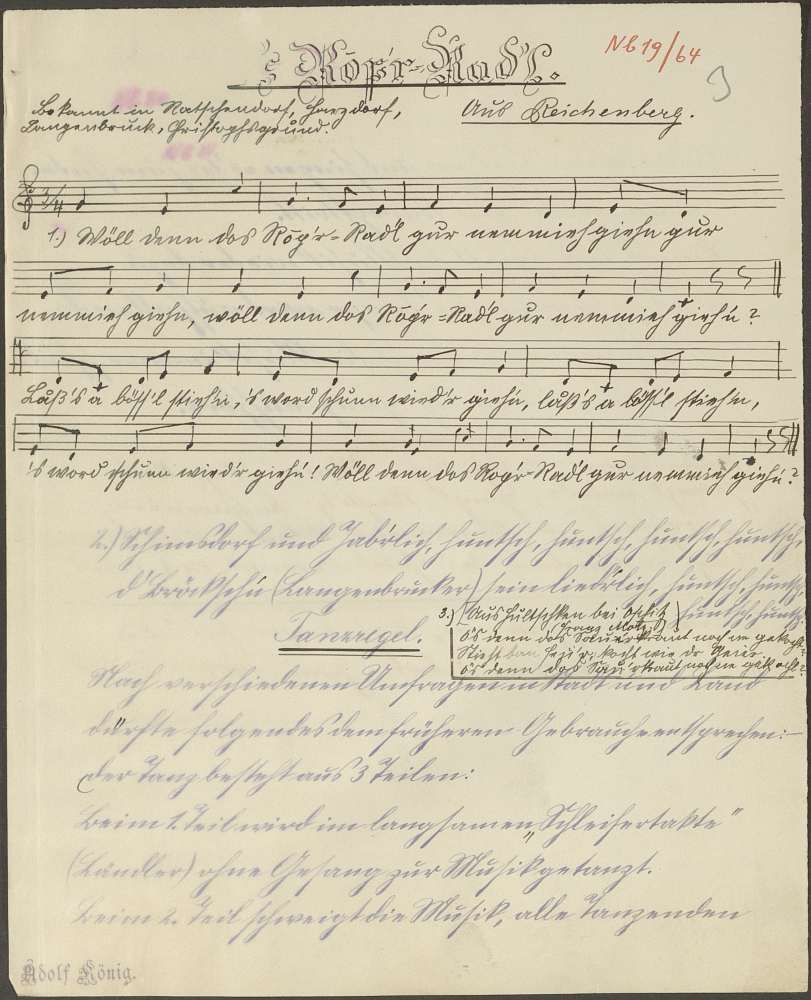 's Röp'r-Rad'l.
Nb 19/64
Bekannt in Ratschendorf, Harzdorf,
Langenbruck, Christophsgrund.
Aus Reichenberg.
1.) Wöll denn dos Röp'r-Rad'l gur nemmieh giehn gur
nemmieh giehn, wöll denn dos Röp'r-Rad'l gur nemmieh gieh'n?
Laß's a böss'l stieh'n, 's word schunn wied'r gieh'n, laß's a böss'l stieh'n,
's word schunn wied'r gieh'n! Wöll denn dos Röp'r-Rad'l gur nemmieh gieh'n?
2.) Schimsdorf und Jaberlich, huntsch, huntsch, huntsch, huntsch,
d' Bröcksch'n (Langenbrucker) sein liederlich, huntsch, huntsch,
huntsch, huntsch.
3.) (Aus Hultschken bei Oschitz
Franz Motz)
Ös denn dos Sauerkraut noch ne gekocht?
Stieht dan , kocht wie dr Geier,
ös denn dos Sauerkraut noch ne gekocht?
Tanzregel.
Nach verschiedenen Umfragen in Stadt und Land
dürfte folgendes dem früheren Gebrauche entsprechen:
Der Tanz besteht aus 3 Teilen:
Beim 1. Teil wird im langsamen „Schleifertakte"
(Ländler) ohne Gesang zur Musik getanzt.
Beim 2. Teil schweigt die Musik, alle Tanzenden
Adolf König.